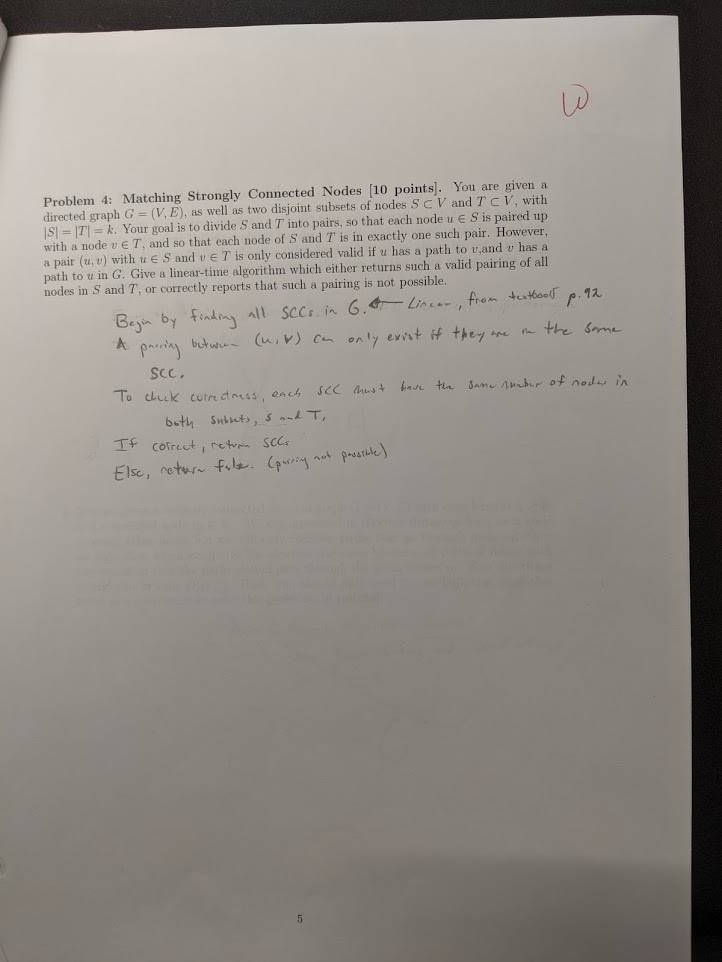 Problem 4: Matching Strongly Connected Nodes [10 points]. You are given a
directed graph G = (V, E), as well as two disjoint subsets of nodes S ⊂ V and T ⊂ V, with
|S| = |T| = k. Your goal is to divide S and T into pairs, so that each node u ∈ S is paired up
with a node v ∈ T, and so that each node of S and T is in exactly one such pair. However,
a pair (u, v) with u ∈ S and v ∈ T is only considered valid if u has a path to v,and v has a
path to u in G. Give a linear-time algorithm which either returns such a valid pairing of all
nodes in S and T, or correctly reports that such a pairing is not possible.
Begin by finding all SCCs in G. ← Linear, from textbook p.92
A pairing between (u,v) can only exist if they are in the same
SCC.
To check correctness, each SCC must have the same number of nodes in
both subsets, S and T.
If correct, return SCCs
Else, return false. (pairing not possible)
5